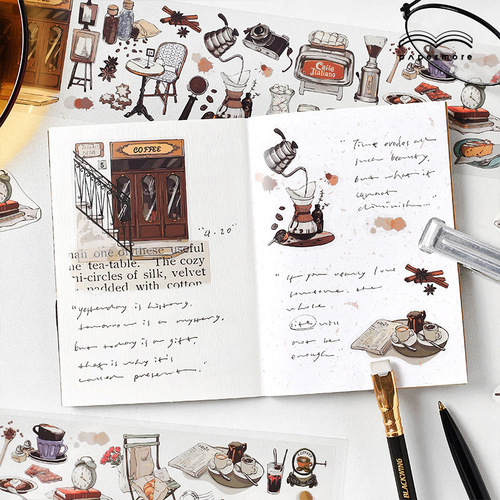 papermore
Caffe
Italiano
COFFEE
"4.20"
man one of these useful
he tea-table. The cozy
ni-circles of silk, velvet
padded with cotton
"yesterday is history.
tomorrow is a mystery.
but today is a gift
that is why it's
called present."
"Time erodes all
such beauty,
but what it
cannot
diminish...
"if you really love
someone, the
whole
life will
not be
enough.
BLACKWING